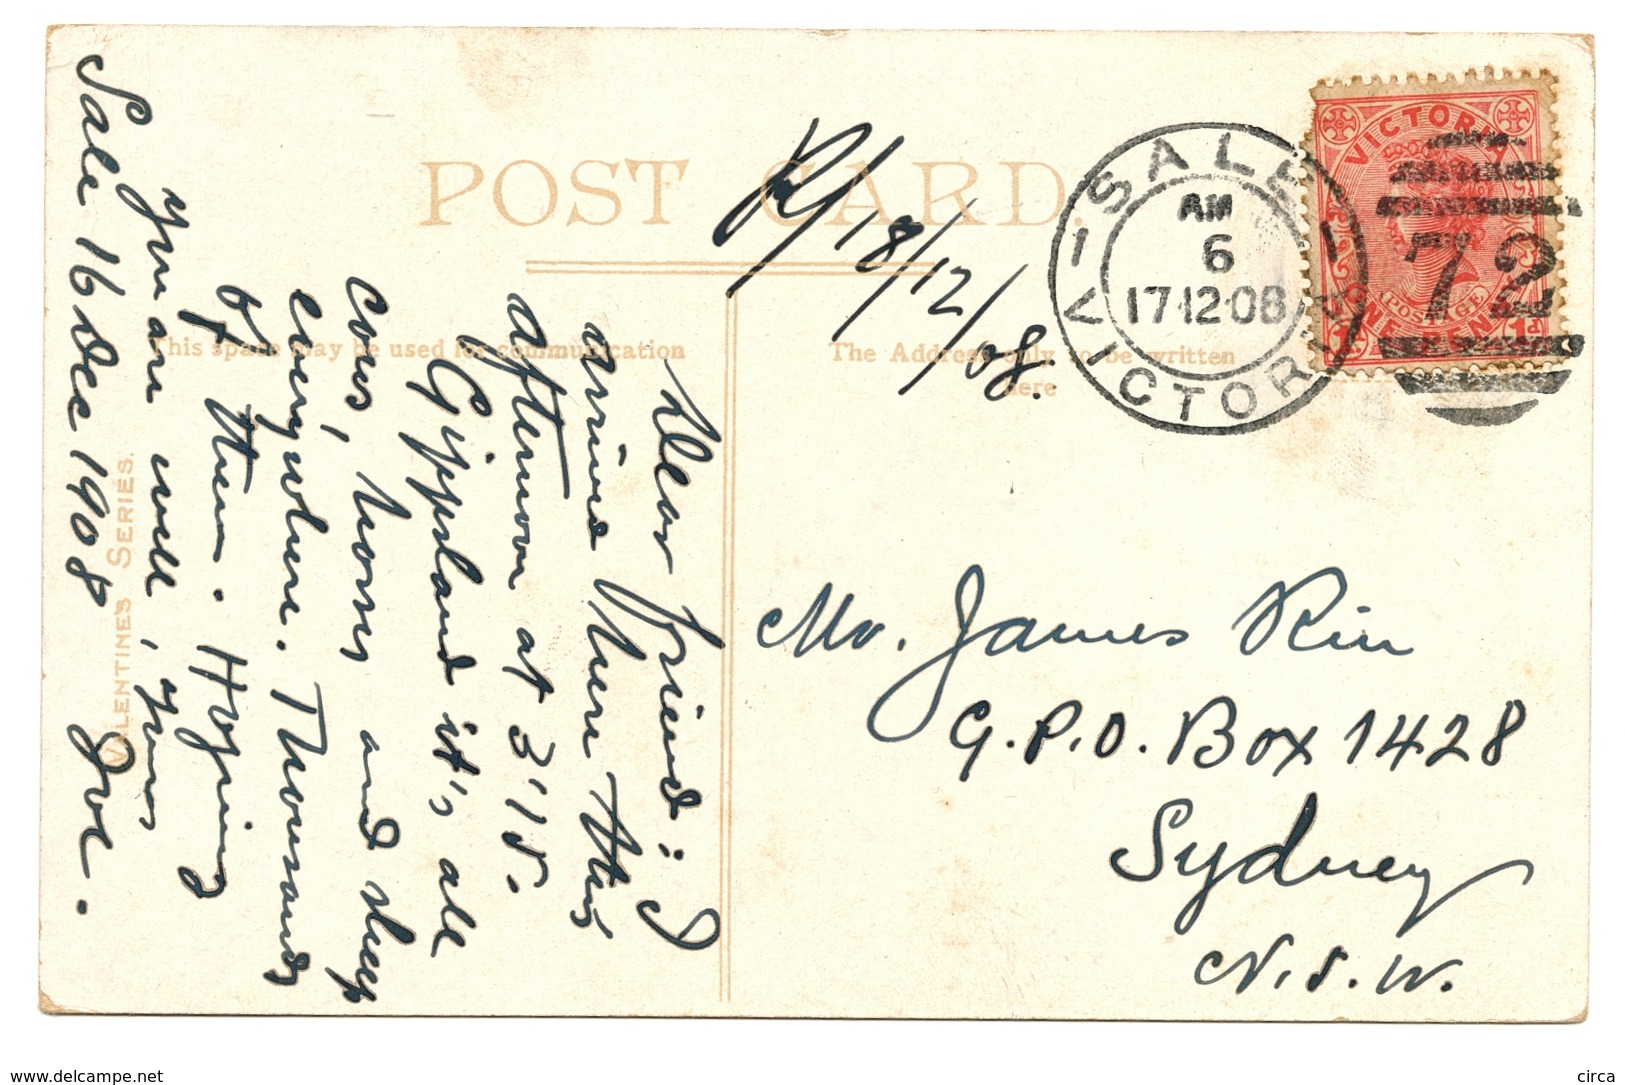 POST CARD.
This space may be used for communication
The Address only to be written
here
VALENTINE'S SERIES.
R/18/12/08.
SALE
AM
6
17·12·08
VICTORIA
72
VICTORIA
POSTAGE
ONE PENNY
1d
Dear friend: I
arrived here this
afternoon at 3'15.
Gippsland it's all
cows, horses and sheep
everywhere. Thousands
of them. Hoping
you are well, yours
Sale 16 Dec 1908 Joe.
Mr. James Rin
G.P.O. Box 1428
Sydney
N.S.W.
www.delcampe.net
circa